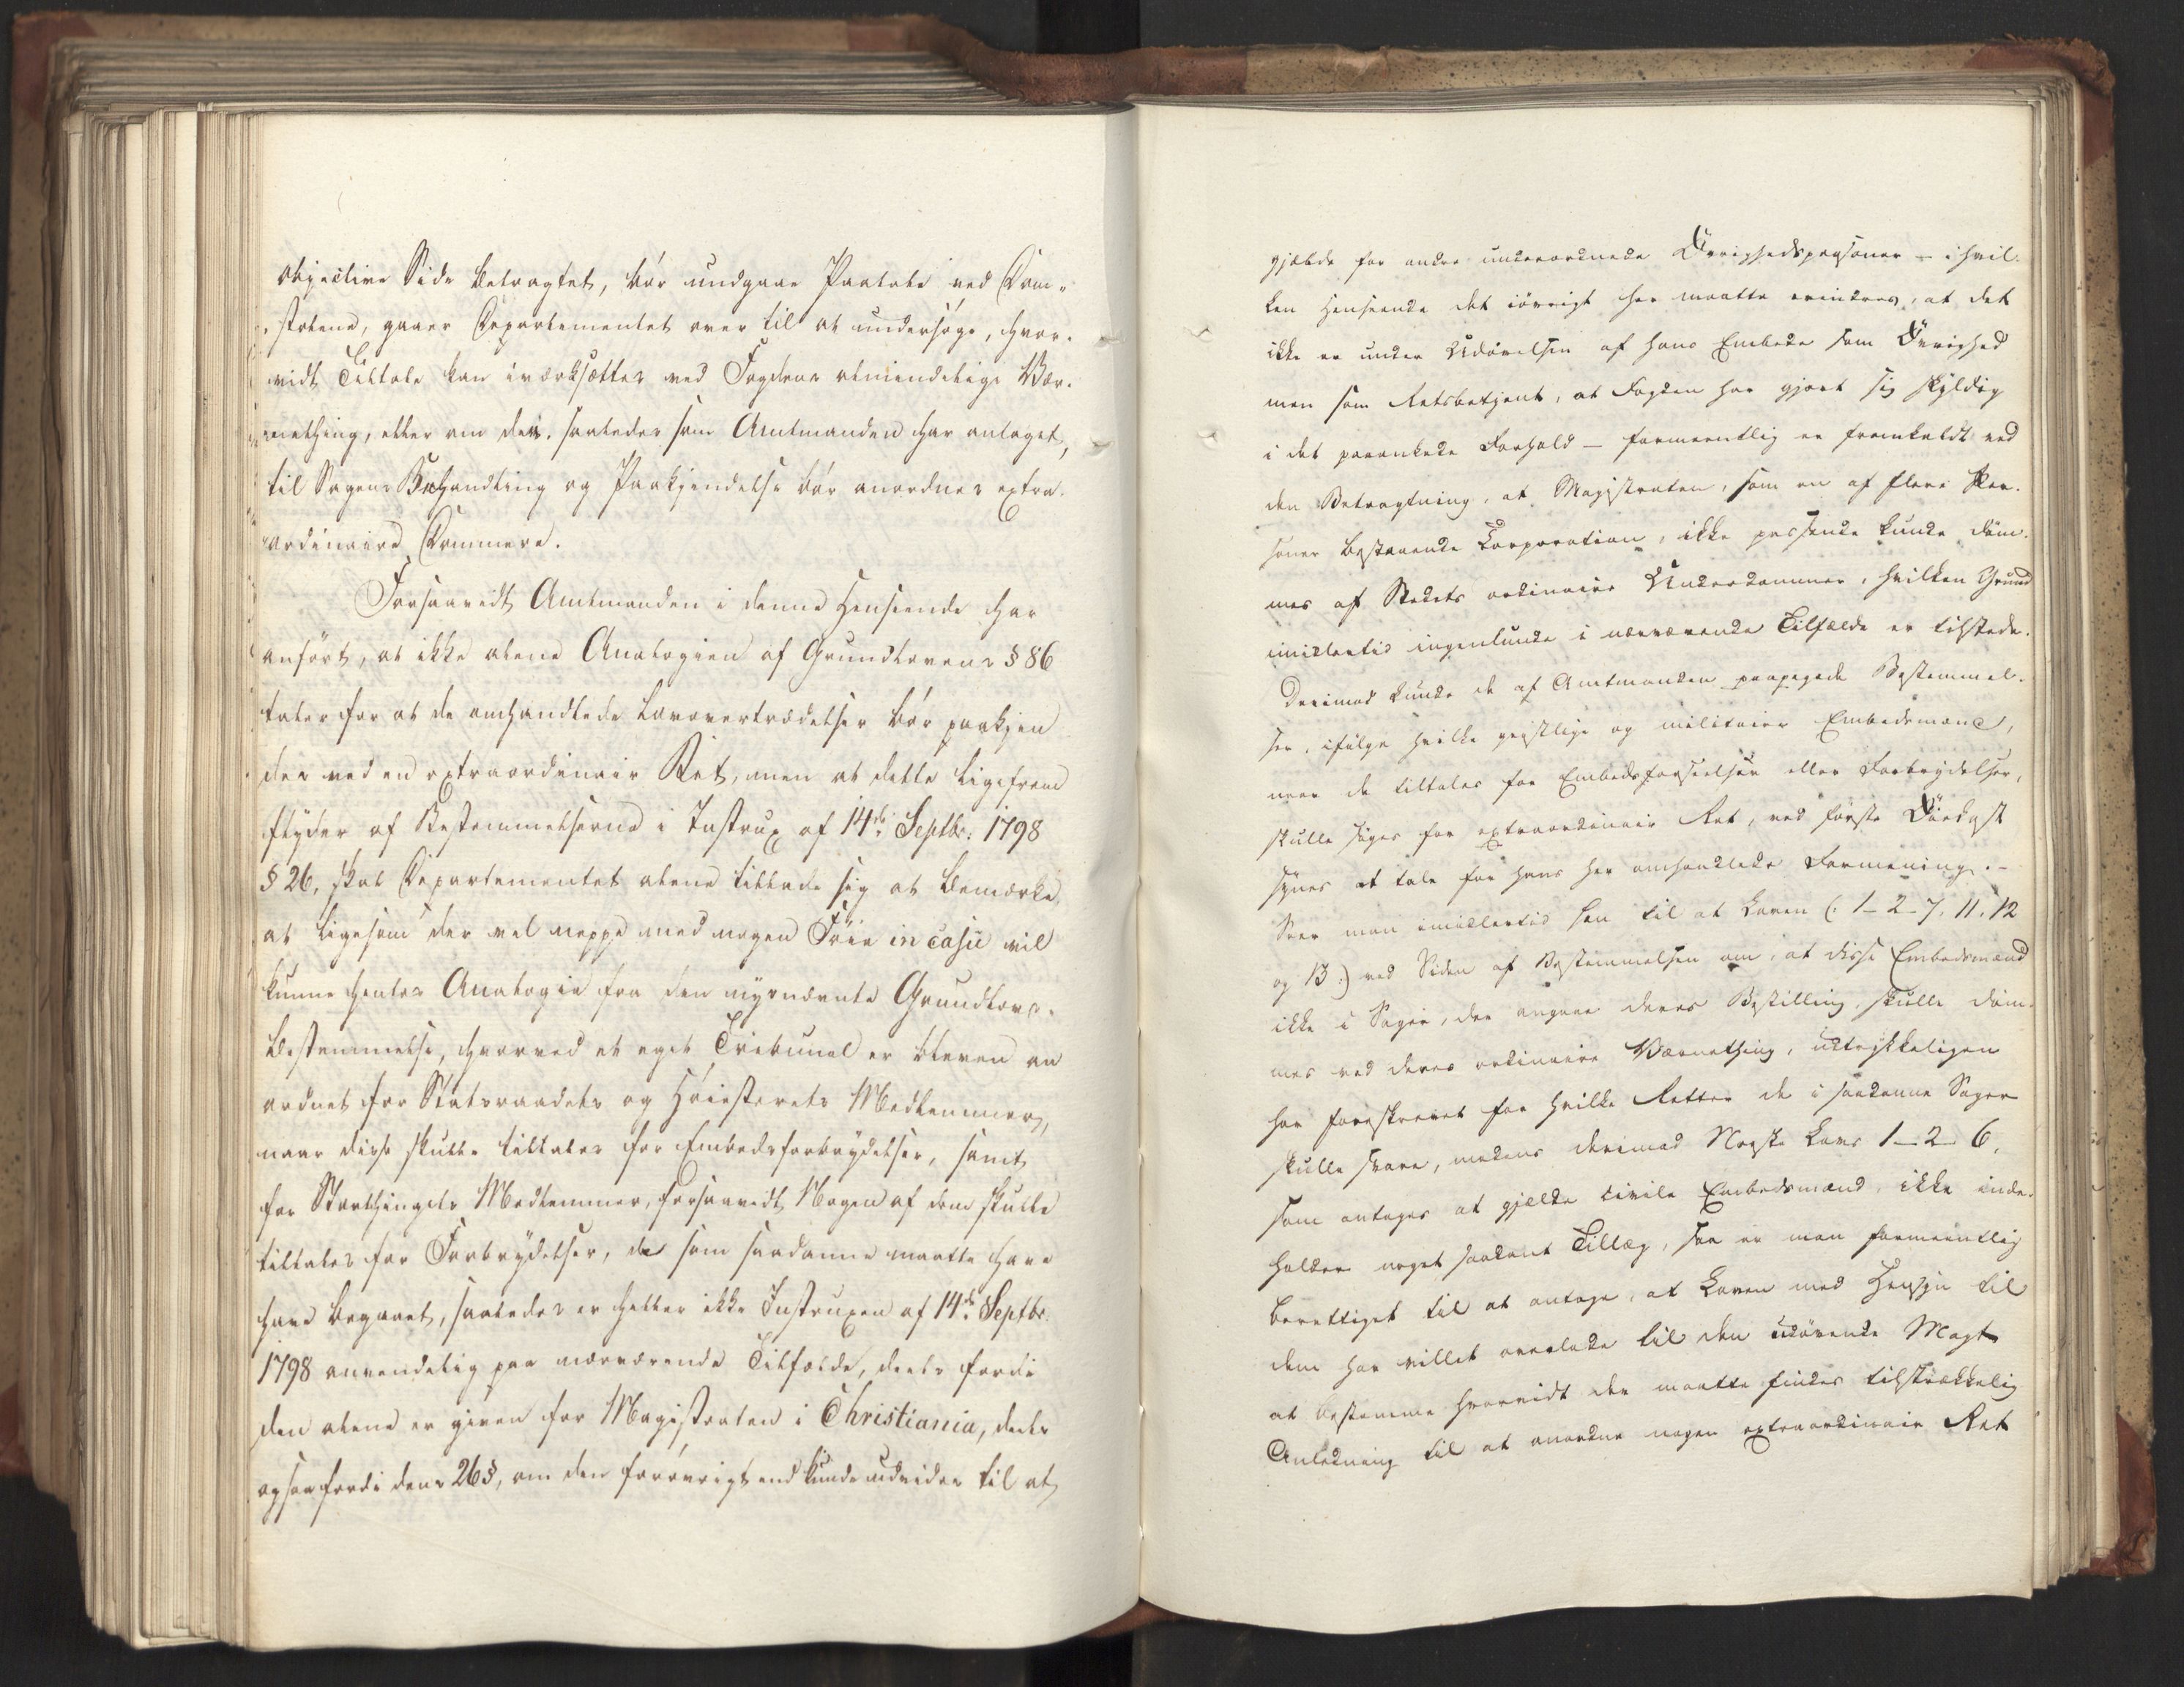 objective Side betragtet, bör undgaae Paatale ved Dom-
stolene, gaaer Departementet over til at undersöge, hvor-
vidt Tiltale kan iværksættes ved Fogdens almindelige Vær-
nething, eller om der, saaledes som Amtmanden har antaget,
til Sagens Behandling og Paakjendelse bör anordnes extra-
ordinaire Dommere.
Forsaavidt Amtmanden i denne Henseende har
anfört, at ikke alene Analogien af Grundlovens § 86
taler for at de omhandlede Lovovertrædelser bör paakjen
des ved en extraordinair Ret, men at dette ligefrem
flyder af Bestemmelserne i Instrux af 14de Septbr: 1798
§ 26, skal Departementet alene tillade sig at bemærke,
at ligesom der vel neppe med nogen Föie in casu vil
kunne hentes Analogie fra den nysnævnte Grundlovs-
bestemmelse, hvorved et eget Tribunal er bleven an
ordnet for Statsraadets og Höiesterets Medlemmer,
naar disse skulle tiltales for Embedsforbrydelser, samt
for Storthingets Medlemmer, forsaavidt Nogen af dem skulle
tiltales for Forbrydelser, de som saadanne maatte have
have begaaet, saaledes er heller ikke Instruxen af 14de Septbr.
1798 anvendelig paa nærværende Tilfælde, deels fordi
den alene er given for Magistraten i Christiania, deels
ogsaa fordi dens 26 §, om den forövrigt end kunde udvides til at
gjælde for andre underordnede Övrighedspersoner – i hvil-
ken Henseende det iövrigt her maatte erindres, at det
ikke er under Udövelsen af hans Embede som Övrighed
men som Retsbetjent, at Fogden har gjort sig skyldig
i det paaankede Forhold – formeentlig er fremkaldt ved
den Betragtning, at Magistraten, som en af flere Per-
soner bestaaende Corporation, ikke passende kunde döm-
mes af Stedets ordinaire Underdommer, hvilken Grund
imidlertid ingenlunde i nærværende Tilfælde er tilstede.
Derimod kunde de af Amtmanden paapegede Bestemmel-
ser, ifölge hvilke geistlige og militaire Embedsmænd,
naar de tiltales for Embedsforseelser eller Forbrydelser,
skulle söges for extraordinair Ret, ved förste Öiekast
synes at tale for hans her omhandlede Formening. –
Seer man imidlertid hen til at Loven (: 1–2–7. 11. 12
og 13 :) ved Siden af Bestemmelsen om, at disse Embedsmænd
ikke i Sager, der angaae deres Bestilling, skulle döm-
mes ved deres ordinaire Værnething, udtrykkeligen
har foreskrevet for hvilke Retter de i saadanne Sager
skulle svare, medens derimod Norske Lovs 1–2–6,
som antages at gjælde civile Embedsmænd, ikke inde-
holder noget saadant Tillæg, saa er man formeentlig
berettiget til at antage, at Loven med Hensyn til
dem har villet overlade til den udövende Magt
at bestemme hvorvidt der maatte findes tilstrækkelig
Anledning til at anordne nogen extraordinair Ret